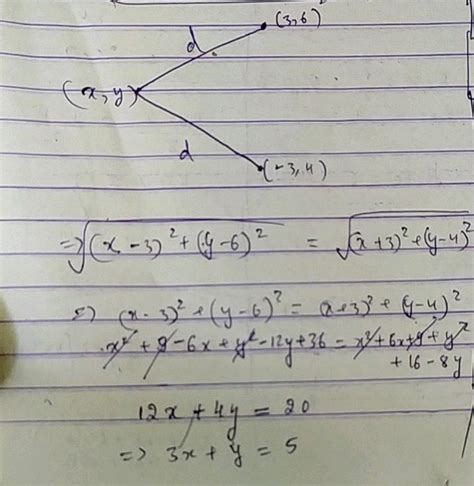 (3,6)
d
(x, y)
d
(-3,4)
=> √(x-3)² + (y-6)² = √(x+3)² + (y-4)²
=> (x-3)² + (y-6)² = (x+3)² + (y-4)²
x² + 9 - 6x + y² - 12y + 36 = x² + 6x + 9 + y²
+ 16 - 8y
12x + 4y = 20
=> 3x + y = 5